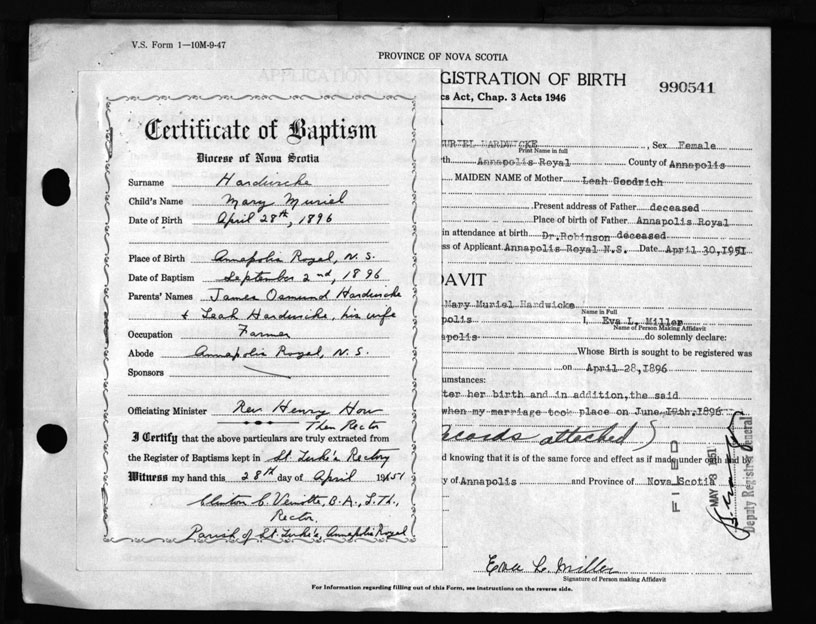 V.S. Form 1—10M-9-47
PROVINCE OF NOVA SCOTIA
GISTRATION OF BIRTH
990541
cs Act, Chap. 3 Acts 1946
Certificate of Baptism
Diocese of Nova Scotia
Surname Hardwicke
Child's Name Mary Muriel
Date of Birth April 28th, 1896
Place of Birth Annapolis Royal, N.S.
Date of Baptism September 2nd, 1896
Parents' Names James Osmund Hardwicke
& Leah Hardwicke, his wife
Occupation Farmer
Abode Annapolis Royal, N.S.
Sponsors
Officiating Minister Rev. Henry How
Then Rector
I Certify that the above particulars are truly extracted from
the Register of Baptisms kept in St. Luke's Rectory
Witness my hand this 28th day of April 1951
B.A., L.Th.,
Rector.
Parish of St. Luke's, Annapolis Royal
URIEL HARDWICKE, Sex Female
Print Name in full
th Annapolis Royal County of Annapolis
MAIDEN NAME of Mother Leah Goodrich
Present address of Father deceased
Place of birth of Father Annapolis Royal
in attendance at birth Dr.Robinson deceased
ss of Applicant Annapolis Royal N.S. Date April 30,1951
DAVIT
Mary Muriel Hardwicke
Name in Full
polis I, Eva L. Miller
Name of Person Making Affidavit
apolis do solemnly declare:
Whose Birth is sought to be registered was
on April 28,1896
umstances:
ter her birth and in addition, the said
when my marriage took place on June 19th.1896
records attached)
d knowing that it is of the same force and effect as if made under oath and
y of Annapolis and Province of Nova Scotia
FILED
MAY 3 1951
Deputy Registrar General
Eva L. Miller
Signature of Person making Affidavit
For Information regarding filling out of this Form, see instructions on the reverse side.